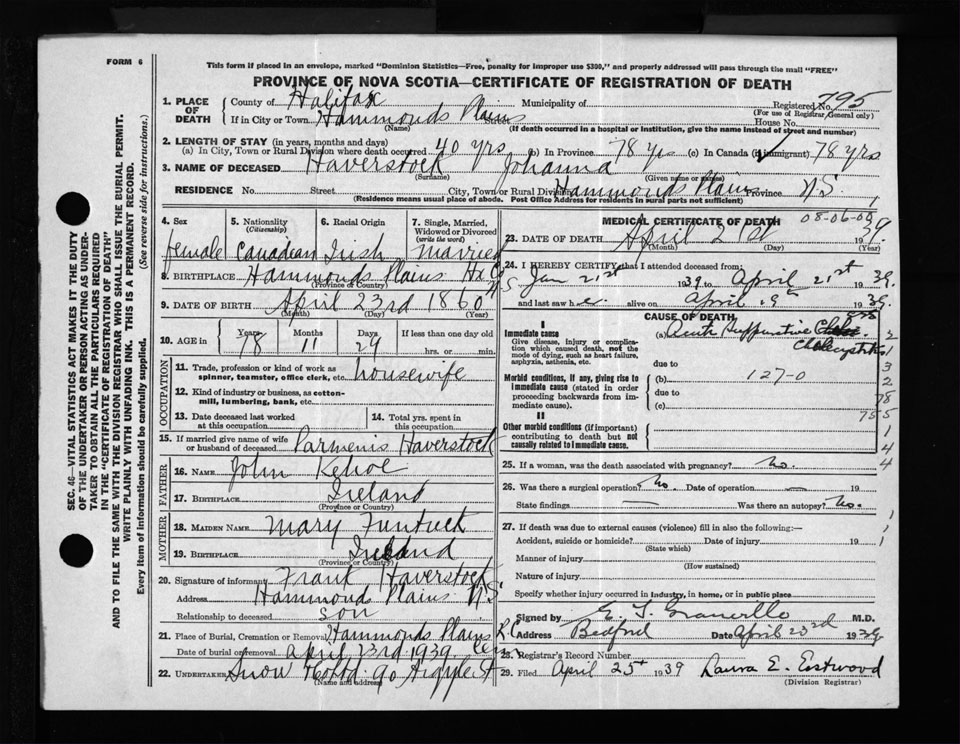 FORM 6
This form if placed in an envelope, marked "Dominion Statistics—Free, penalty for improper use $300," and properly addressed will pass through the mail "FREE"
PROVINCE OF NOVA SCOTIA—CERTIFICATE OF REGISTRATION OF DEATH
1. PLACE OF DEATH
County of Halifax Municipality of Registered No. 795
(For use of Registrar General only)
If in City or Town Hammonds Plains Street House No.
(Name) (If death occurred in a hospital or institution, give the name instead of street and number)
2. LENGTH OF STAY (in years, months and days)
(a) In City, Town or Rural Division where death occurred 40 yrs (b) In Province 78 yrs (c) In Canada (if immigrant) 78 yrs
3. NAME OF DECEASED Haverstock Johanna
(Surname) (Given name or names)
RESIDENCE No. Street City, Town or Rural Division Hammonds Plains Province N.S.
(Residence means usual place of abode. Post Office Address for residents in rural parts not sufficient)
4. Sex
female
5. Nationality
(Citizenship)
Canadian
6. Racial Origin
Irish
7. Single, Married, Widowed or Divorced
(write the word)
Married
8. BIRTHPLACE Hammonds Plains Hx Co N S
(Province or Country)
9. DATE OF BIRTH April 23rd 1860
(Month) (Day) (Year)
10. AGE in
Years 78
Months 11
Days 29
If less than one day old
hrs. or min.
OCCUPATION
11. Trade, profession or kind of work as spinner, teamster, office clerk, etc. housewife
12. Kind of industry or business, as cotton-mill, lumbering, bank, etc.
13. Date deceased last worked at this occupation
14. Total yrs. spent in this occupation
15. If married give name of wife or husband of deceased Parmenis Haverstock
FATHER
16. NAME John Kehoe
17. BIRTHPLACE Ireland
(Province or Country)
MOTHER
18. MAIDEN NAME Mary
19. BIRTHPLACE Ireland
(Province or Country)
20. Signature of informant Frank Haverstock
Address Hammond Plains N.S
Relationship to deceased son
21. Place of Burial, Cremation or Removal Hammonds Plains R.C.
Date of burial or removal April 23rd 1939 Cem
22. UNDERTAKER Snow & Co Ltd. 90 Argyle St
(Name and address)
MEDICAL CERTIFICATE OF DEATH
08-06-00
23. DATE OF DEATH April 21st 1939.
(Month) (Day)
24. I HEREBY CERTIFY that I attended deceased from:
Jan 21st 1939 to April 21st 1939.
and last saw her alive on April 19th 1939.
CAUSE OF DEATH
I
Immediate cause
Give disease, injury or complication which caused death, not the mode of dying, such as heart failure, asphyxia, asthenia, etc.
(a) Acute Suppurative
Cholecystitis
due to
Morbid conditions, if any, giving rise to immediate cause (stated in order proceeding backwards from immediate cause).
(b) 127-0
due to
(c)
II
Other morbid conditions (if important) contributing to death but not causally related to immediate cause.
3
2
78
1
4
4
25. If a woman, was the death associated with pregnancy? No.
26. Was there a surgical operation? No. Date of operation — 19
State findings — Was there an autopsy? No.
27. If death was due to external causes (violence) fill in also the following:—
Accident, suicide or homicide? Date of injury 19
(State which)
Manner of injury
(How sustained)
Nature of injury
Specify whether injury occurred in industry, in home, or in public place
Signed by M.D.
Address Bedford Date April 23rd 1939
28. Registrar's Record Number
29. Filed April 25th 1939 Laura E. Eastwood
(Division Registrar)
SEC. 46—VITAL STATISTICS ACT MAKES IT THE DUTY
OF THE UNDERTAKER OR PERSON ACTING AS UNDER-
TAKER TO OBTAIN ALL THE PARTICULARS REQUIRED
IN THE "CERTIFICATE OF REGISTRATION OF DEATH"
AND TO FILE THE SAME WITH THE DIVISION REGISTRAR WHO SHALL ISSUE THE BURIAL PERMIT.
WRITE PLAINLY WITH UNFADING INK. THIS IS A PERMANENT RECORD.
Every item of information should be carefully supplied. (See reverse side for instructions.)